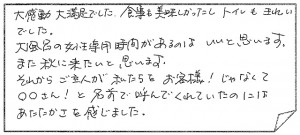 大感動 大満足でした。食事も美味しかったし トイレも きれい
でした。
大風呂の女性専用時間があるのは いいと思います。
また秋に来たいと思います。
それから ご主人が 私たちを お客様! じゃなくて
〇〇さん! と 名前で呼んでくれていたのには
あたたかさを感じました。